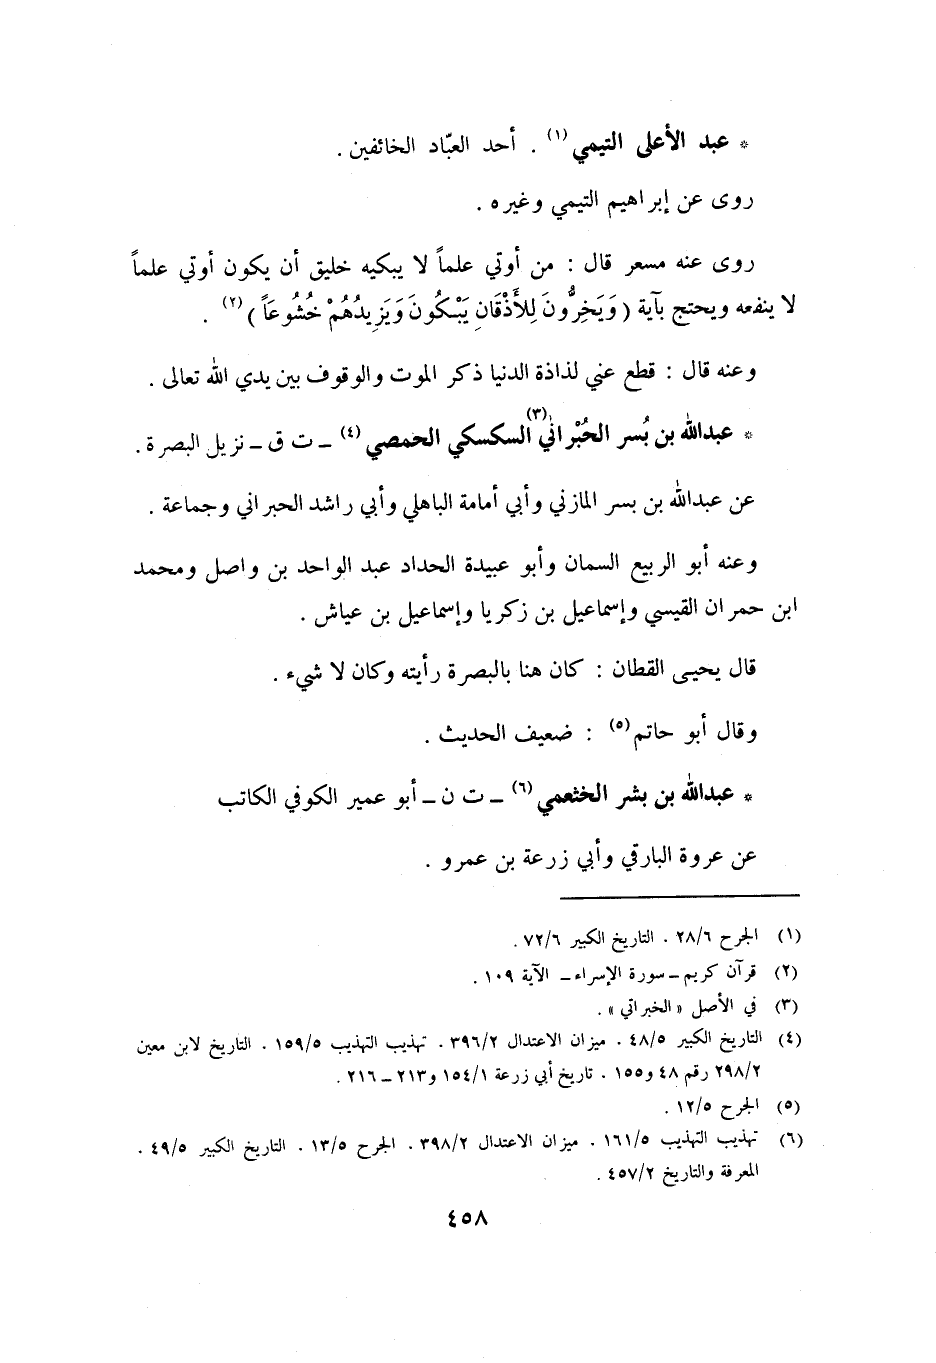 * عبد الأعلى التيمي(١) . أحد العبّاد الخائفين .
روى عن إبراهيم التيمي وغيره .
روى عنه مسعر قال : من أوتي علماً لا يبكيه خليق أن يكون أوتي علماً
لا ينفعه ويحتج بآية ( وَيَخِرُّونَ لِلأَذْقَانِ يَبْكُونَ وَيَزِيدُهُمْ خُشُوعَاً )(٢) .
وعنه قال : قطع عني لذاذة الدنيا ذكر الموت والوقوف بين يدي الله تعالى .
* عبدالله بن بُسر الحُبْراني(٣) السكسكي الحمصي(٤) ـ ت ق ـ نزيل البصرة .
عن عبدالله بن بسر المازني وأبي أمامة الباهلي وأبي راشد الحبراني وجماعة .
وعنه أبو الربيع السمان وأبو عبيدة الحداد عبد الواحد بن واصل ومحمد
ابن حمران القيسي وإسماعيل بن زكريا وإسماعيل بن عياش .
قال يحيى القطان : كان هنا بالبصرة رأيته وكان لا شيء .
وقال أبو حاتم(٥) : ضعيف الحديث .
* عبدالله بن بشر الخثعمي(٦) ـ ت ن ـ أبو عمير الكوفي الكاتب
عن عروة البارقي وأبي زرعة بن عمرو .
(١) الجرح ٢٨/٦ . التاريخ الكبير ٧٢/٦ .
(٢) قرآن كريم ـ سورة الإسراء ـ الآية ١٠٩ .
(٣) في الأصل «الخبراتي» .
(٤) التاريخ الكبير ٤٨/٥ . ميزان الاعتدال ٣٩٦/٢ . تهذيب التهذيب ١٥٩/٥ . التاريخ لابن معين
٢٩٨/٢ رقم ٤٨ و١٥٥ . تاريخ أبي زرعة ١٥٤/١ و٢١٣ ـ ٢١٦ .
(٥) الجرح ١٢/٥ .
(٦) تهذيب التهذيب ١٦١/٥ . ميزان الاعتدال ٣٩٨/٢ . الجرح ١٣/٥ . التاريخ الكبير ٤٩/٥ .
المعرفة والتاريخ ٤٥٧/٢ .
٤٥٨